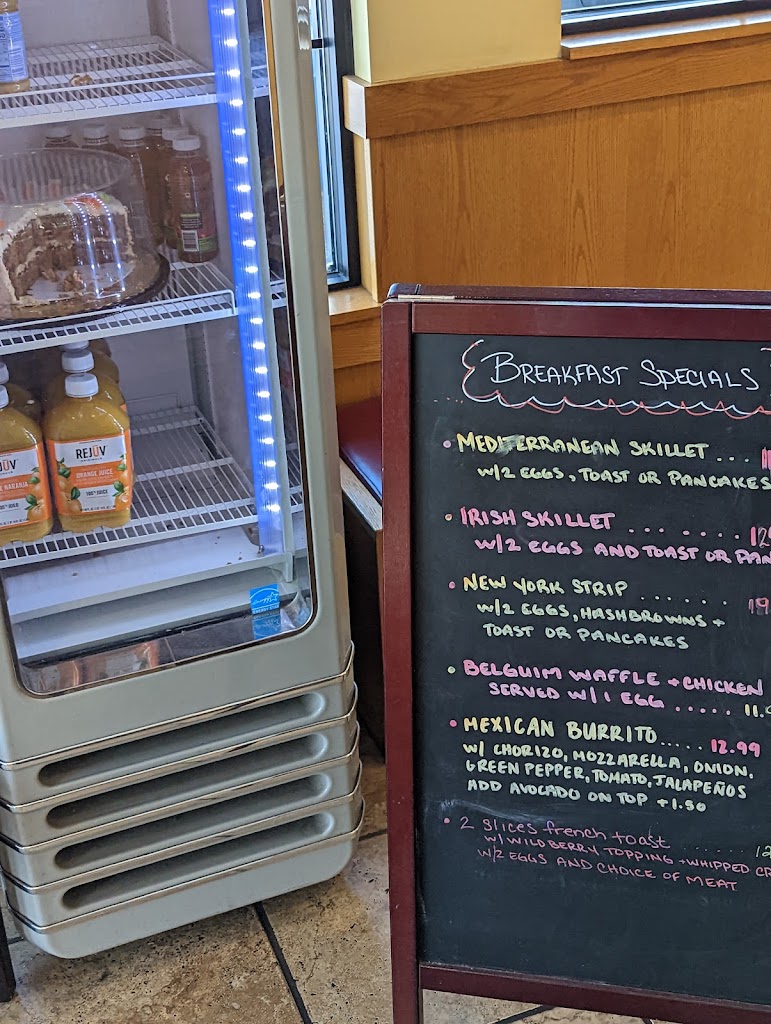 BREAKFAST SPECIALS
• MEDITERRANEAN SKILLET ...
W/2 EGGS, TOAST OR PANCAKES
• IRISH SKILLET ........
W/2 EGGS AND TOAST OR PAN
• NEW YORK STRIP .......
W/2 EGGS, HASHBROWNS +
TOAST OR PANCAKES
• BELGUIM WAFFLE + CHICKEN
SERVED W/1 EGG ..... 11.
• MEXICAN BURRITO..... 12.99
W/ CHORIZO, MOZZARELLA, ONION,
GREEN PEPPER, TOMATO, JALAPEÑOS
ADD AVOCADO ON TOP +1.50
• 2 slices french toast ....... 12
W/ WILDBERRY TOPPING + WHIPPED CR
W/2 EGGS AND CHOICE OF MEAT
REJŪV
ORANGE JUICE
100% JUICE
REJŪV
NARANJA
100% JUICE
ENERGY STAR